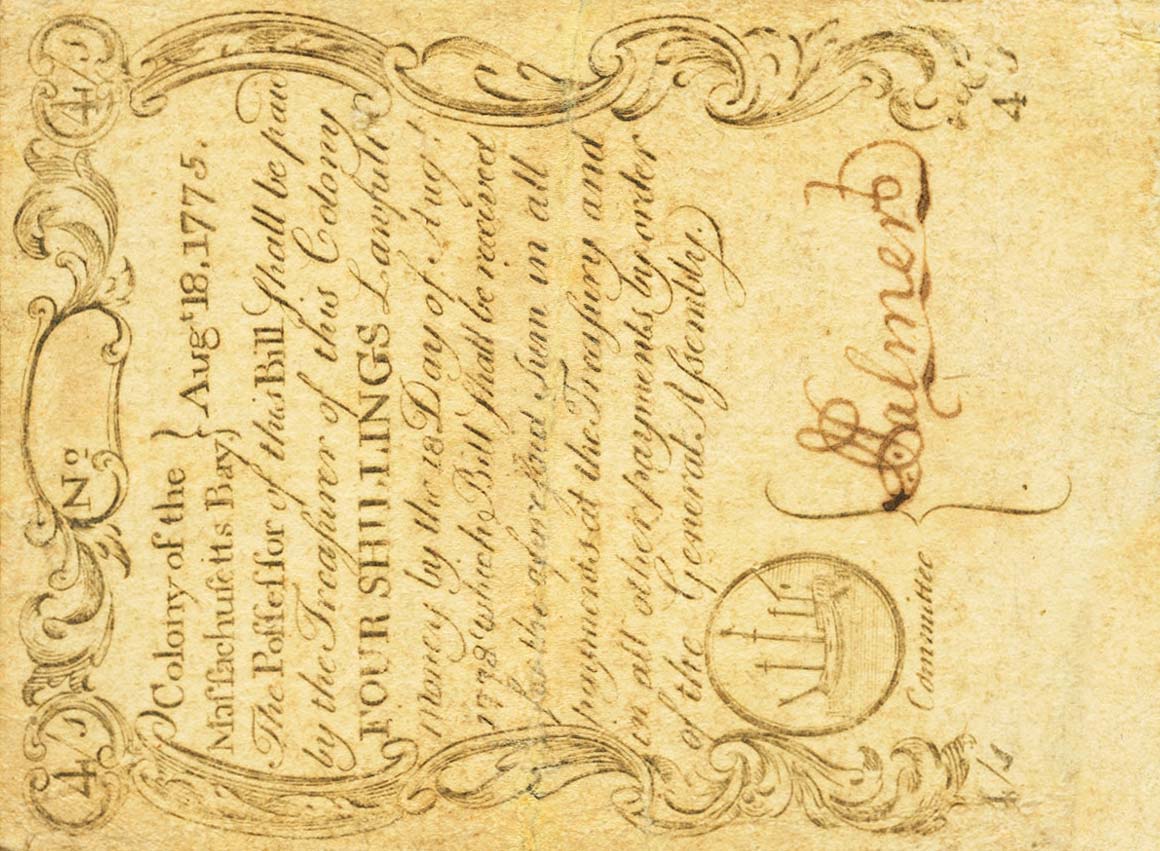 4/ 4/
No
Colony of the } Augt 18.1775.
Maſſachuſetts Bay.}
The Poſſeſſor of this Bill ſhall be paid
by the Treaſurer of this Colony
FOUR SHILLINGS Lawfull
money by the 18 Day of Augt
1778 which Bill ſhall be received
for the aforeſaid ſum in all
payments at the Treaſury and
in all other payments by order
of the General Aſsembly.
Palmer
Committee
4/s 4/s